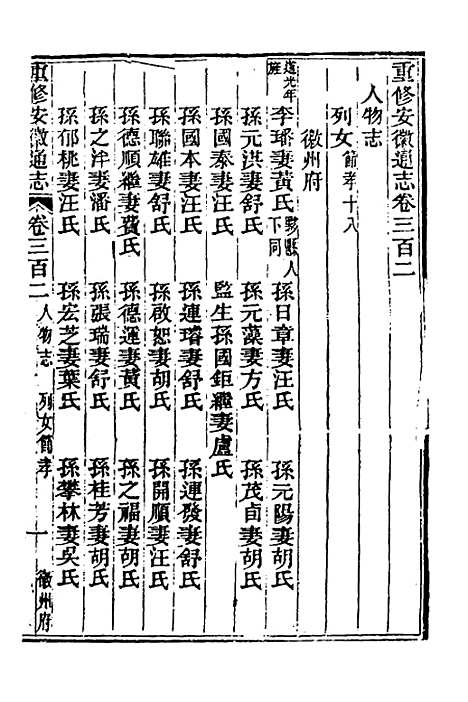 重修安徽通志卷三百二
人物志
列女節孝十八
徽州府
道光年旌
李璠妻黃氏黟縣人下同 孫日章妻汪氏 孫元陽妻胡氏
孫元洪妻黃氏 孫元藻妻方氏 孫茂貞妻胡氏
孫國泰妻汪氏 監生孫國鉅繼妻盧氏
孫國本妻汪氏 孫連璿妻舒氏 孫連發妻舒氏
孫聯雄妻舒氏 孫啟恕妻胡氏 孫開順妻汪氏
孫德順繼妻費氏 孫德運妻黃氏 孫之福妻胡氏
孫之泮妻潘氏 孫張瑞妻舒氏 孫桂芳妻胡氏
孫郁桃妻汪氏 孫宏芝妻葉氏 孫攀林妻吳氏
重修安徽通志 卷三百二 人物志 列女節孝 一 徽州府